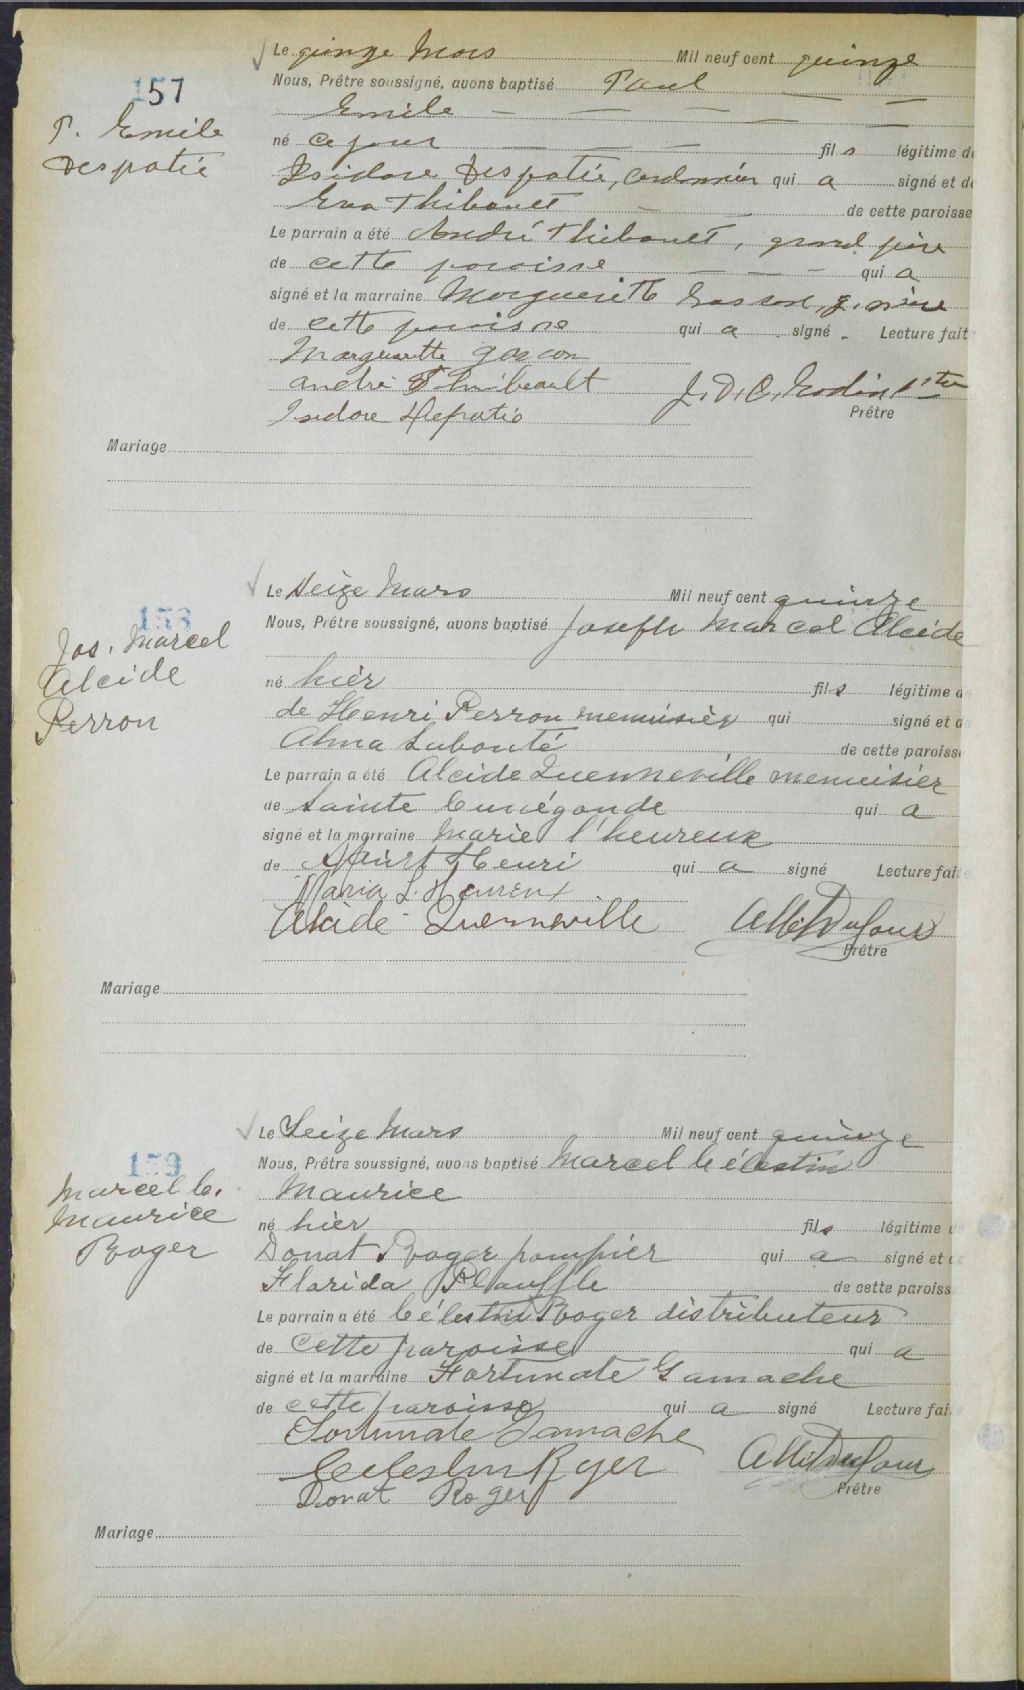 Le quinze Mars Mil neuf cent quinze
157 Nous, Prêtre soussigné, avons baptisé Paul
P. Emile Emile
Despatie né ce jour fils légitime de
Isidore Despatie, cordonnier qui a signé et de
Eva Thibault de cette paroisse
Le parrain a été André Thibault, grand père
de cette paroisse qui a
signé et la marraine Marguerite Gascon, g. mère
de cette paroisse qui a signé. Lecture faite
Marguerite Gascon
André Thibeault J. D. C. Godin Ptre
Isidore Despatie Prêtre
Mariage
Le Seize Mars Mil neuf cent quinze
158 Nous, Prêtre soussigné, avons baptisé Joseph Marcel Alcide
Jos. Marcel
Alcide né hier fils légitime de
Perron de Henri Perron menuisier qui signé et de
Alma Labonté de cette paroisse
Le parrain a été Alcide Quenneville menuisier
de Sainte Cunégonde qui a
signé et la marraine Marie l'heureux
de Saint Henri qui a signé Lecture faite
Maria L'Heureux
Alcide Quenneville
Prêtre
Mariage
Le Seize Mars Mil neuf cent quinze
159 Nous, Prêtre soussigné, avons baptisé Marcel Célestin
Marcel C. Maurice
Maurice né hier fils légitime de
Roger Donat Roger pompier qui a signé et de
Florida Plouffe de cette paroisse
Le parrain a été Célestin Roger distributeur
de cette paroisse qui a
signé et la marraine Fortunate Gamache
de cette paroisse qui a signé Lecture faite
Fortunate Gamache
Celestin Roger
Donat Roger Prêtre
Mariage